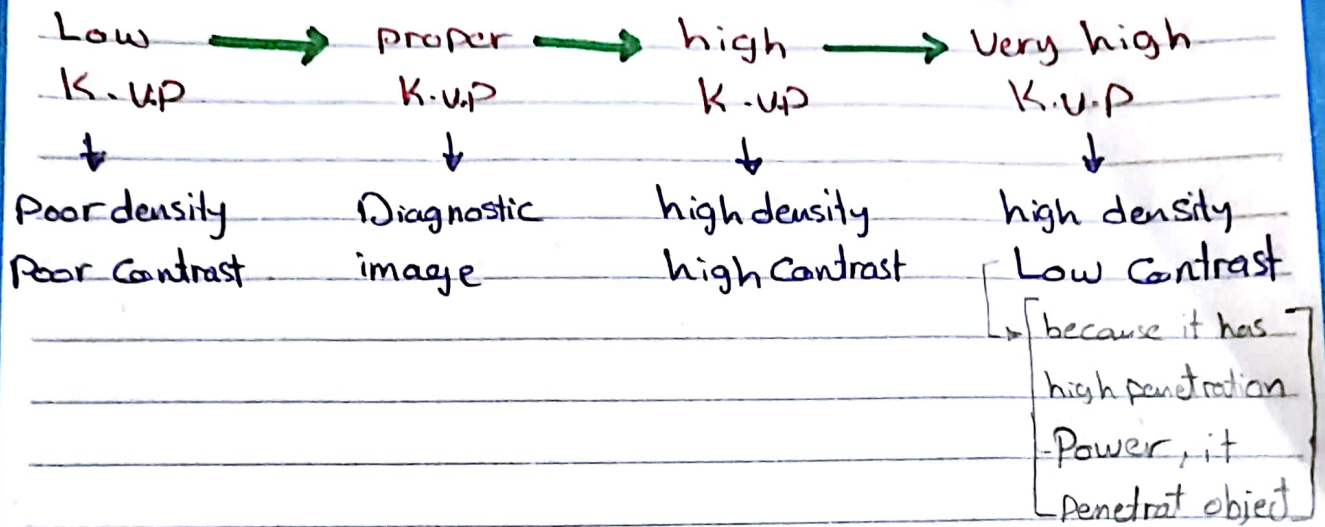 Low → proper → high → very high
K.V.P K.V.P K.V.P K.V.P
↓ ↓ ↓ ↓
Poor density Diagnostic high density high density
Poor Contrast image high Contrast Low Contrast
because it has
high penetration
Power, it
penetrat object